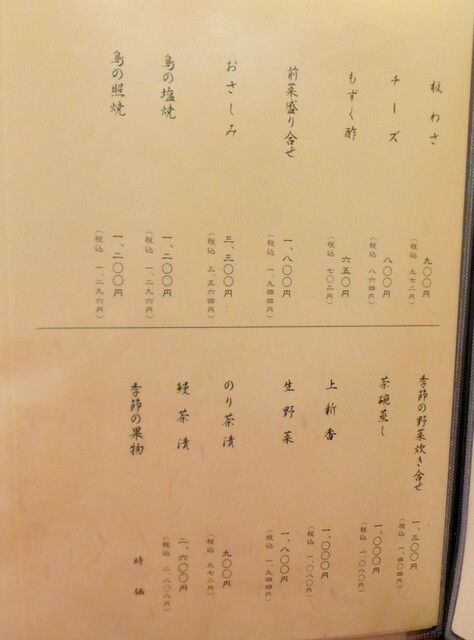 板わさ
九〇〇円
(税込 九七二円)
チーズ
八〇〇円
(税込 八六四円)
もずく酢
六五〇円
(税込 七〇二円)
前菜盛り合せ
一、八〇〇円
(税込 一、九四四円)
おさしみ
三、三〇〇円
(税込 三、五六四円)
鳥の塩焼
一、二〇〇円
(税込 一、二九六円)
鳥の照焼
一、二〇〇円
(税込 一、二九六円)
季節の野菜炊き合せ
一、三〇〇円
(税込 一、四〇四円)
茶碗蒸し
一、〇〇〇円
(税込 一、〇八〇円)
上新香
一、〇〇〇円
(税込 一、〇八〇円)
生野菜
一、八〇〇円
(税込 一、九四四円)
のり茶漬
九〇〇円
(税込 九七二円)
鰻茶漬
二、六〇〇円
(税込 二、八〇八円)
季節の果物
時価